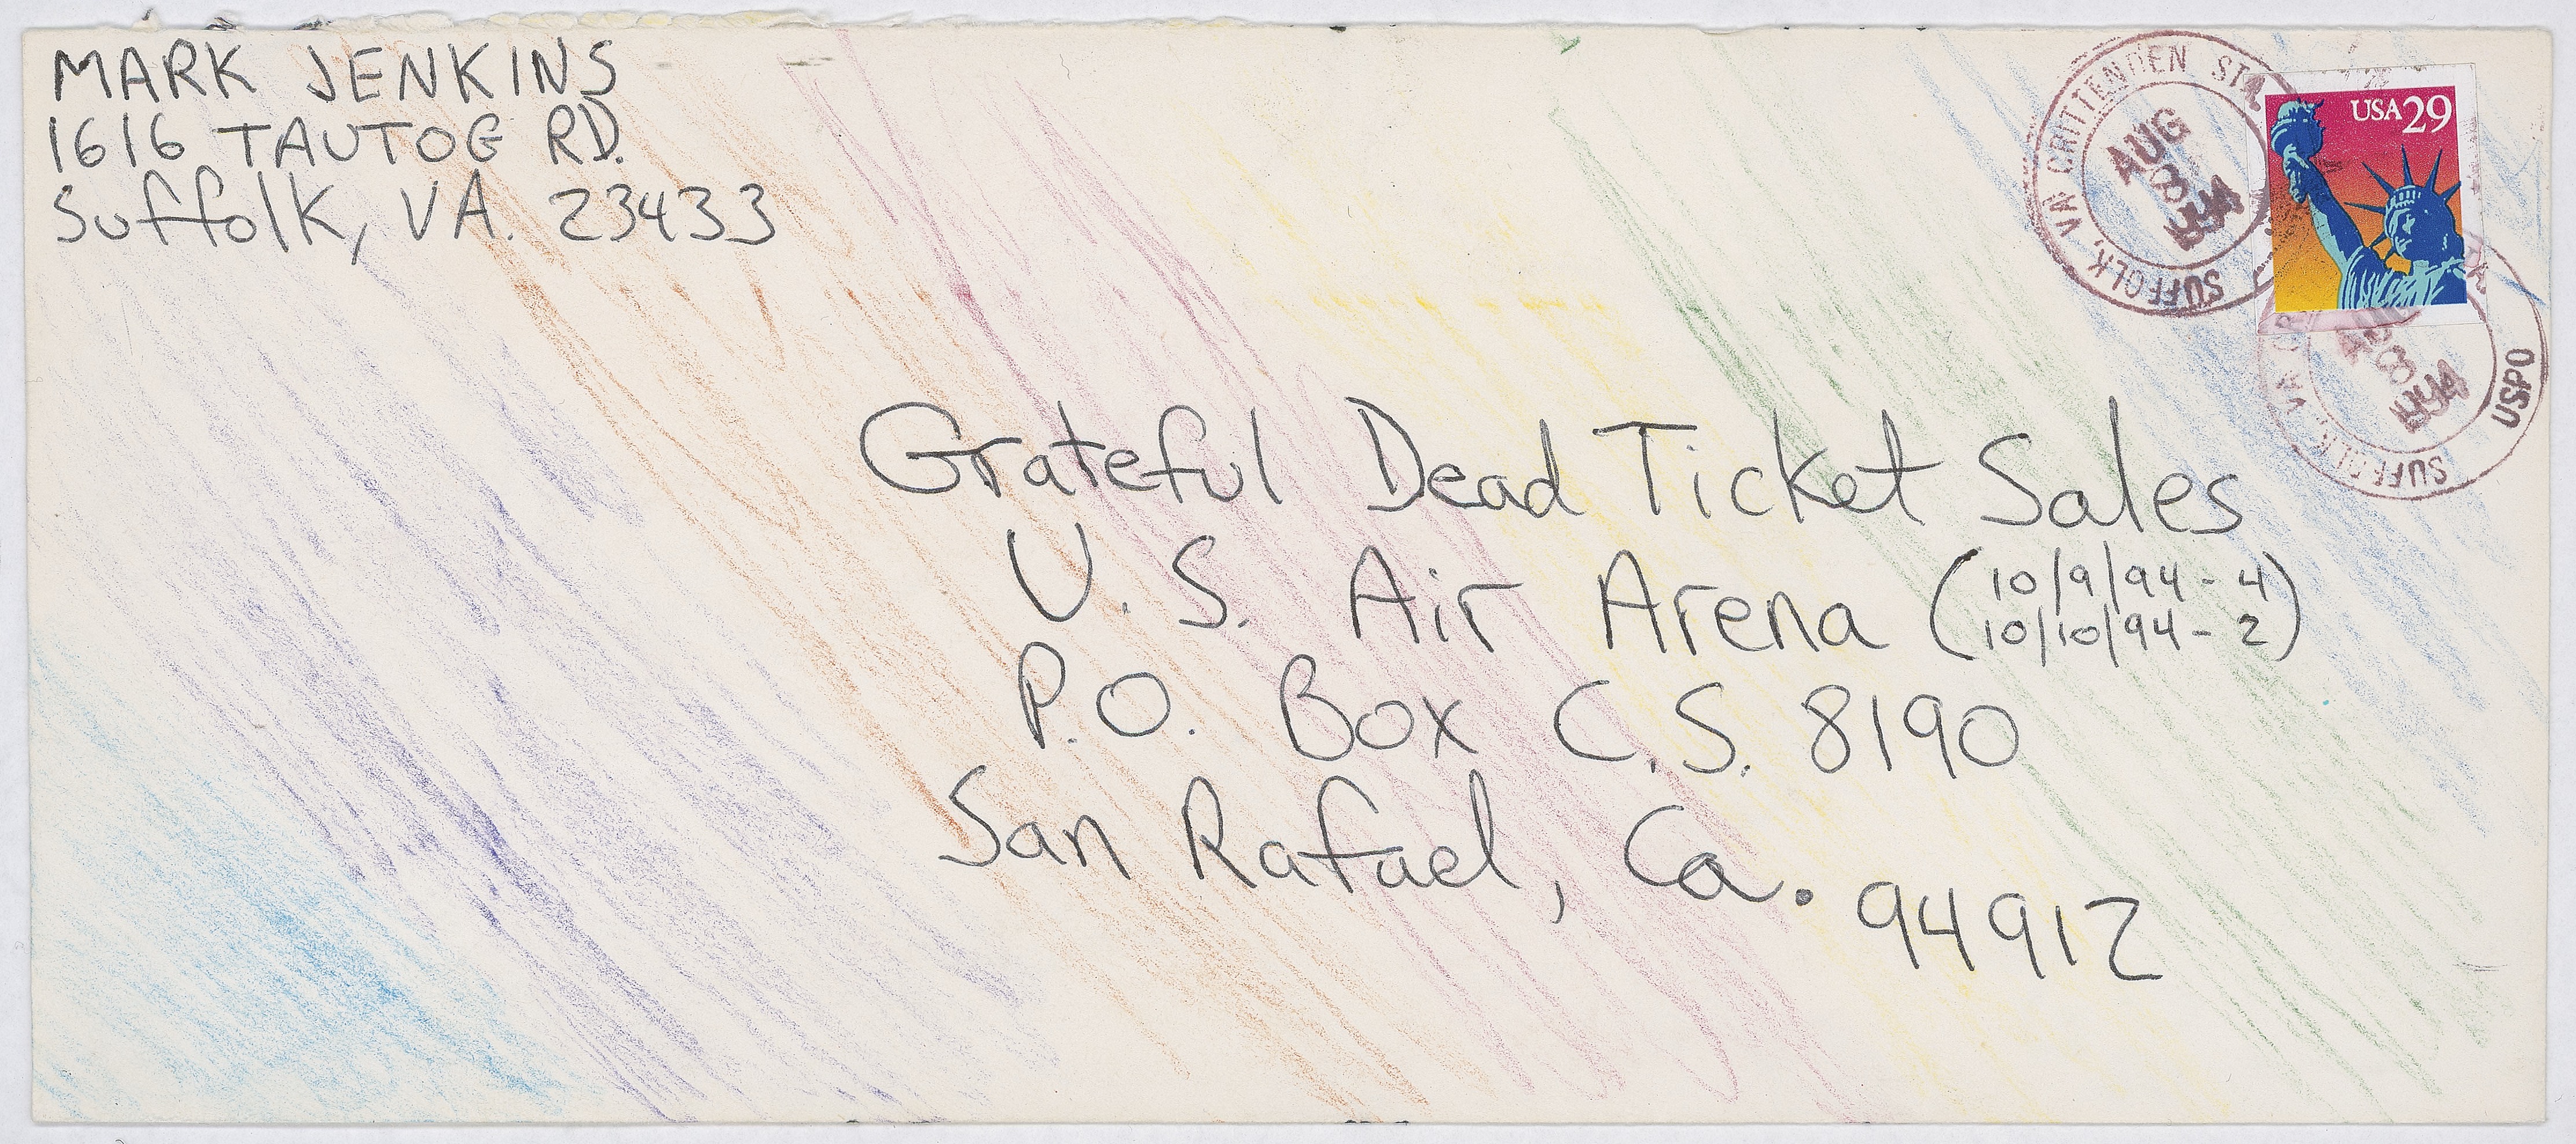 MARK JENKINS
1616 TAUTOG RD.
Suffolk, VA. 23433
SUFFOLK, VA CRITTENDEN STA.
AUG
8
1994
USA 29
SUFFOLK, VA
AUG
8
1994
USPO
Grateful Dead Ticket Sales
U.S. Air Arena (10/9/94 - 4
10/10/94 - 2)
P.O. Box C.S. 8190
San Rafael, Ca. 94912